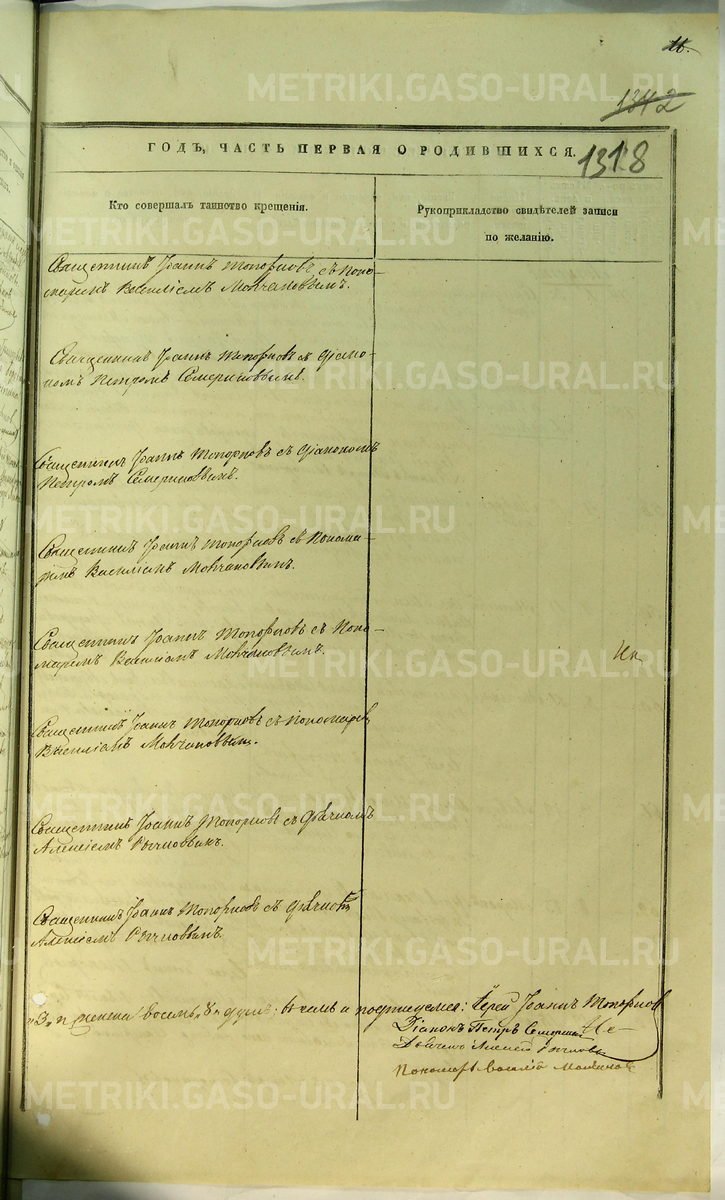 16.
1342
1318
ГОДЪ, ЧАСТЬ ПЕРВАЯ О РОДИВШИХСЯ.
Кто совершалъ таинство крещенія.
Рукоприкладство свидѣтелей записи
по желанію.
Священникъ Іоаннъ Топорковъ съ Поно-
маремъ Василіемъ Молчановымъ.
Священникъ Іоаннъ Топорковъ съ Діако-
номъ Петромъ
Священникъ Іоаннъ Топорковъ съ Діакономъ
Петромъ
Священникъ Іоаннъ Топорковъ съ Понома-
remъ Василіемъ Молчановымъ.
Священникъ Іоаннъ Топорковъ съ Поно-
маремъ Василіемъ Молчановымъ.
Священникъ Іоаннъ Топорковъ съ Пономаремъ
Василіемъ Молчановымъ.
Священникъ Іоаннъ Топорковъ съ Дьячкомъ
Алексіемъ
Священникъ Іоаннъ Топорковъ съ Дьячкомъ
Алексіемъ
восемь „8“ душъ. въ чемъ и подпишемся: Іерей Іоаннъ Топорковъ
Діаконъ Петръ
Дьячекъ Алексей
Пономарь Василій Молчановъ
METRIKI.GASO-URAL.RU